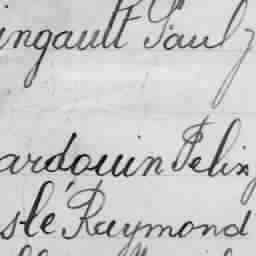 ingault Paul
ardouin Felix
slé Raymond